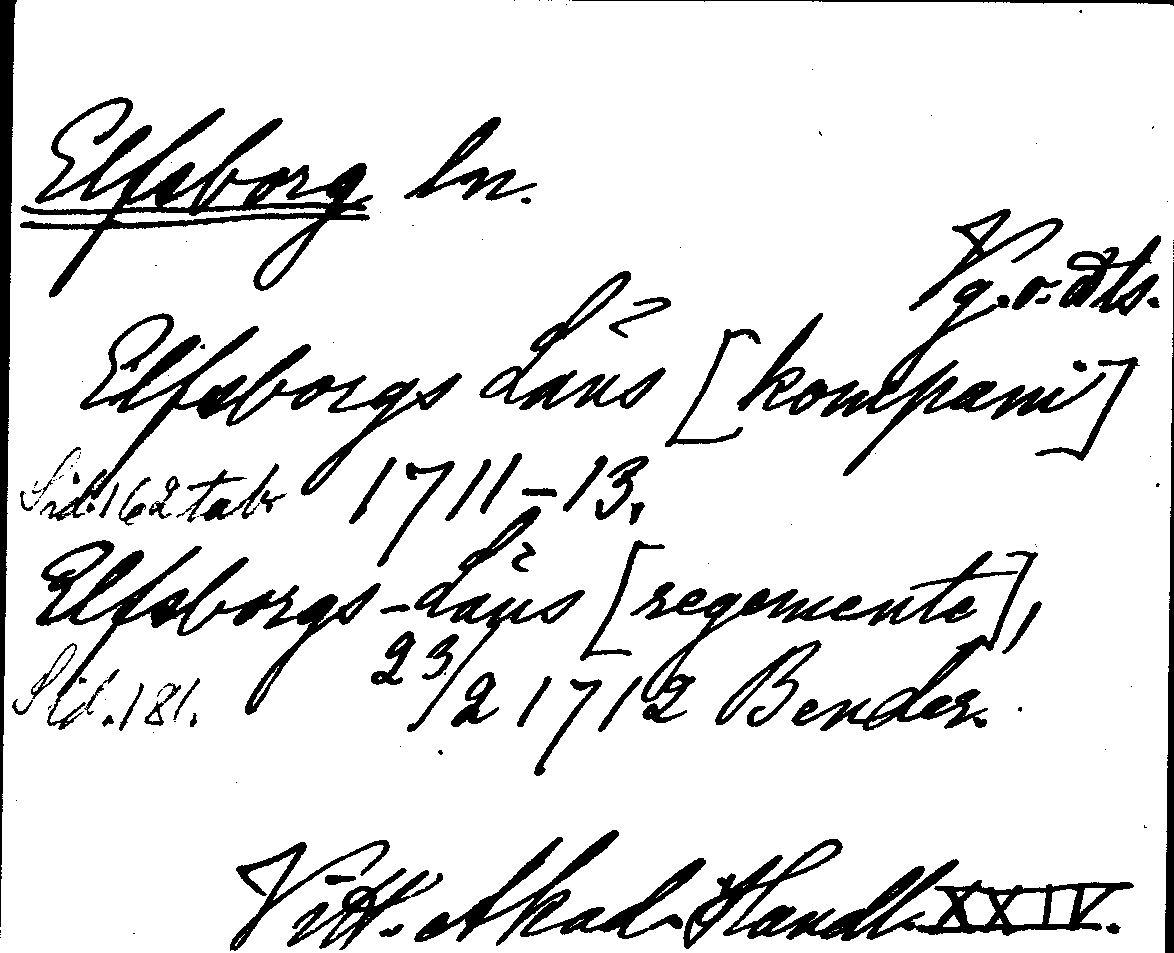 Elfsborg ln.
Vg. o. Dls.
Elfsborgs Läns [kompani]
Sid. 162 tab. 1711–13,
Elfsborgs-Läns [regemente],
Sid. 181. 23/2 1712 Bender.
Vitt. Akad. Handl. XXIV.